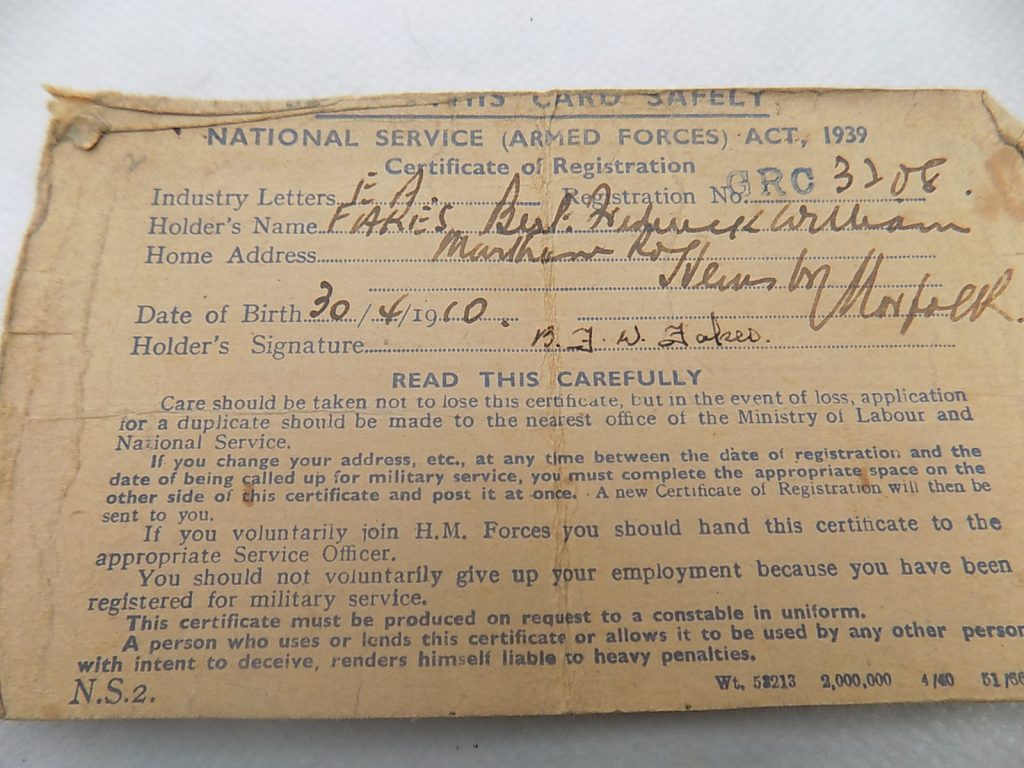 THIS CARD SAFELY
NATIONAL SERVICE (ARMED FORCES) ACT, 1939
Certificate of Registration
Industry Letters E A. Registration No. GRC 3208.
Holder's Name FAKES Bert. Frederick William
Home Address Martham Rd
Hemsby Norfolk.
Date of Birth 30/4/1910.
Holder's Signature B. F. W. Fakes.
READ THIS CAREFULLY
Care should be taken not to lose this certificate, but in the event of loss, application
for a duplicate should be made to the nearest office of the Ministry of Labour and
National Service.
If you change your address, etc., at any time between the date of registration and the
date of being called up for military service, you must complete the appropriate space on the
other side of this certificate and post it at once. A new Certificate of Registration will then be
sent to you.
If you voluntarily join H.M. Forces you should hand this certificate to the
appropriate Service Officer.
You should not voluntarily give up your employment because you have been
registered for military service.
This certificate must be produced on request to a constable in uniform.
A person who uses or lends this certificate or allows it to be used by any other person
with intent to deceive, renders himself liable to heavy penalties.
N.S.2.
Wt. 53213 2,000,000 4/40 51/66